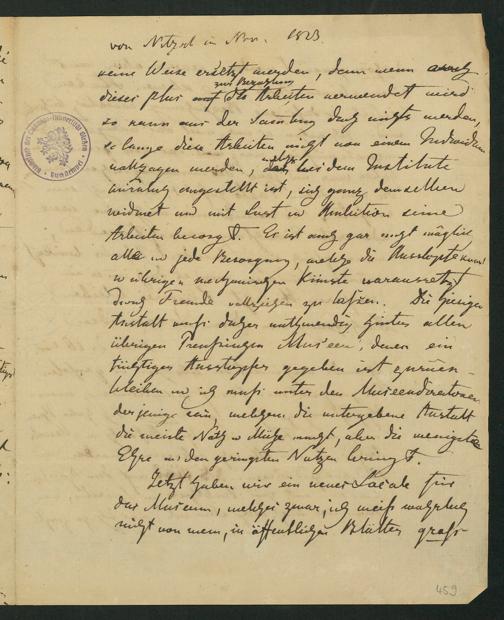 von Nitzsch im Nov. 1823
keine Weise ersetzt werden, denn wenn auch
zur Bezahlung
dieses plus auf die Arbeiten verwendet wird
so kann aus der Samlung doch nichts werden,
so lange diese Arbeiten nicht von einem Individuum
vollzogen werden, welches bei dem Institute
angestellt ist, sich ganz demselben
widmet und mit Lust u Ambition seine
Arbeiten besorgt. Es ist auch gar nicht möglich
alle u jede Besorgung, welche die Ausstopfekunst
u übrigen mechanischen Künste voraussetzt
durch Fremde vollziehen zu lassen. Die hiesige
Anstalt muß daher nothwendig hinter allen
übrigen Preußischen Museen, denen ein
tüchtiger Ausstopfer gegeben ist zurück-
bleiben u ich muß unter den Museendirectoren
derjenige sein, welchem die untergebene Anstalt
die meiste Noth u Mühe macht, aber die wenigste
Ehre u den geringsten Nutzen bringt.
Jetzt haben wir ein neues Locale für
das Museum, welches zwar, ich weiß wahrlich
nicht von wem, in öffentlichen Blätter groß-
459